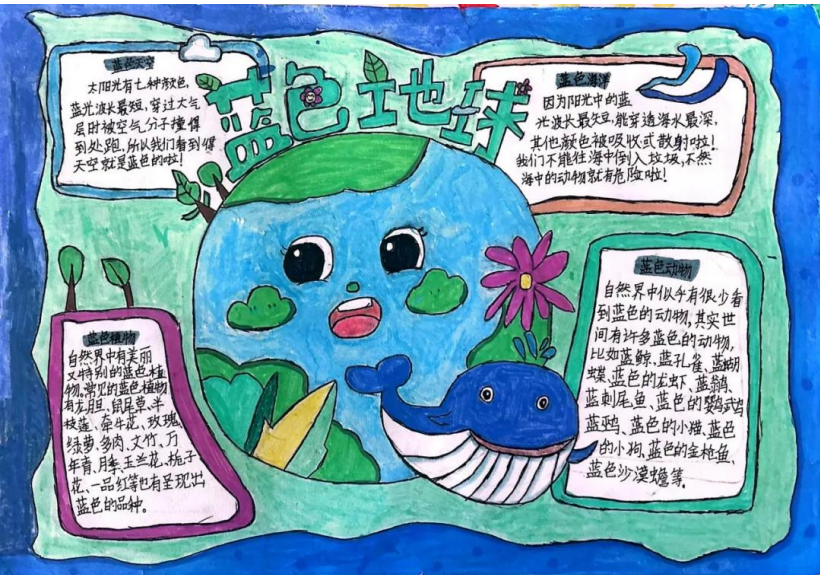 蓝色地球
蓝色天空
太阳光有七种颜色,
蓝光波长最短,穿过大气
层时被空气分子撞得
到处跑,所以我们看到得
天空就是蓝色的啦!
蓝色海洋
因为阳光中的蓝
光波长最短,能穿透海水最深,
其他颜色被吸收或散射啦!
我们不能往海中倒入垃圾,不然
海中的动物就有危险啦!
蓝色植物
自然界中有美丽
又特别的蓝色植
物。常见的蓝色植物
有龙胆、鼠尾草、半
枝莲、牵牛花、玫瑰
绿萝、多肉、文竹、万
年青、月季、玉兰花、栀子
花、一品红等也有呈现出
蓝色的品种。
蓝色动物
自然界中似乎有很少看
到蓝色的动物,其实世
间有许多蓝色的动物,
比如蓝鲸、蓝孔雀、蓝蝴
蝶、蓝色的龙虾、蓝鹊、
蓝刺尾鱼、蓝色的鹦鹉
蓝鸦、蓝色的小猫、蓝色
的小狗、蓝色的金枪鱼、
蓝色沙漠蟾等。